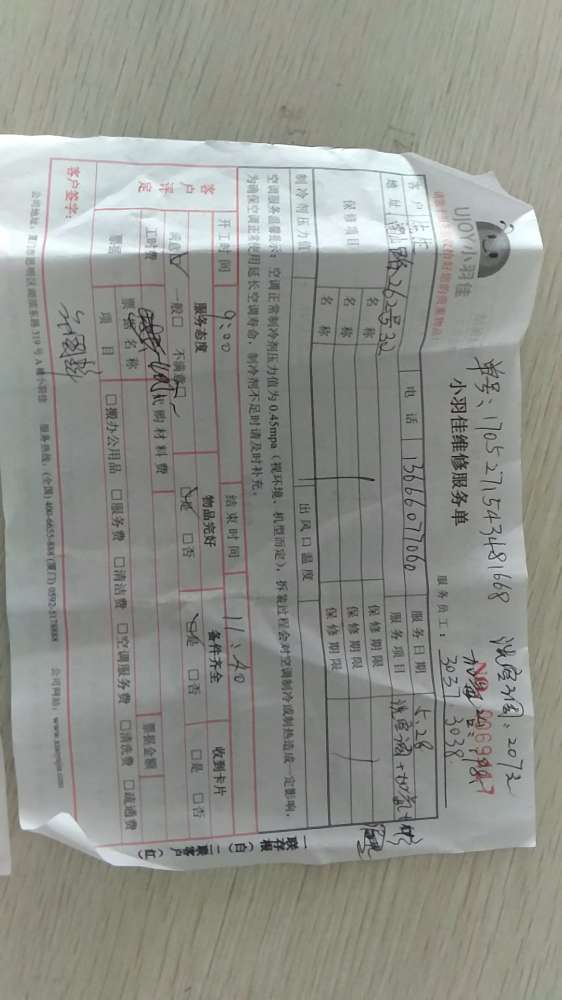 单号:1705271543481668
UJOY小羽佳
小羽佳维修服务单
服务员工:
3037 3038
客户
电话 13666077060
服务日期 5.28
地址
服务项目
保修项目
名称
保修期限
名称
保修期限
名称
保修期限
制冷剂压力值
出风口温度
空调服务温馨提示:空调正常制冷剂压力值为0.45mpa(视环境、机型而定),拆装过程会对空调制冷或制热造成一定影响,
为确保空调正常使用延长空调寿命,制冷剂不足时请及时补充。
开工时间 9:00
结束时间 11:40
客户评定
服务态度
物品完好
备件齐全
收到卡片
一般□ 不满意□
是 □否
是 □否
□是 □否
工时费
代购材料费
票据金额
票据
票据名称
项目
□搬办公用品 □服务费 □清洁费 □空调服务费 □清洗费 □疏通费
客户签字:
一联存根(白) 二联客户(红)
公司地址:厦门市思明区湖滨东路319号A幢小羽佳 服务热线:(全国)400-6655-888 (厦门)0592-5176888 公司网站:www.xiaoyujia.com